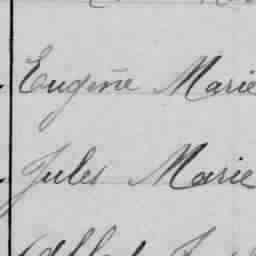 Eugène Marie
Jules Marie